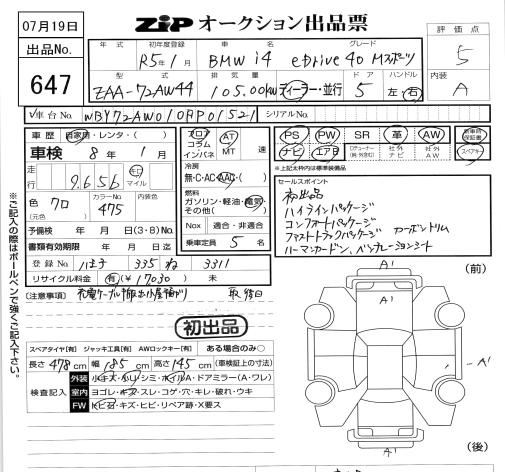 07月19日
ZIP オークション出品票
出品No.
647
評価点
5
内装
A
年式 初年度登録 車名 グレード
R5年1月 BMW i4 eDrive40 Mスポーツ
型式 排気量 ドア ハンドル
ZAA-72AW44 105.00kw ディーラー・並行 5 左・右
車台No. WBY72AW010
シリアルNo.
車歴 自家用・レンタ・( )
車検 8年1月
走行 9,656 キロ マイル
色 クロ カラーNo. 475 内装色
(元色)
予備検 年 月 日(3・8)No.
書類有効期限 年 月 日迄
登録No 八王子 335 ね 3311
リサイクル料金 有(¥17030) 未
フロア コラム インパネ
AT MT 速
冷房
無・C・AC・AAC・( )
燃料
ガソリン・軽油・電気
その他( )
Nox 適合・非適合
乗車定員 5 名
PS PW SR 革 AW 新車時保証書
ナビ エアB TVチューナー(純・外含む) 社外ナビ 社外AW スペアキー
※上記太枠内は標準装備品
セールスポイント
初出品
ハイラインパッケージ
コンフォートパッケージ
ファストトラックパッケージ カーボントリム
ハーマンカードン、ベンチレーションシート
[注意事項]
初出品
スペアタイヤ[有] ジャッキ工具[有] AWロックキー[有] ある場合のみ○
長さ 478 cm 幅 185 cm 高さ 145 cm (車検証上の寸法)
検査記入
外装 小キズ・ハリ・シミ・ホイルA・ドアミラー(A・ワレ)
室内 ヨゴレ・キズ・スレ・コゲ・穴・キレ・破れ・ウキ
FW トビ石・キズ・ヒビ・リペア跡・X要ス
※ご記入の際はボールペンで強くご記入下さい。
(前)
A1
A1
A1
A1
(後)